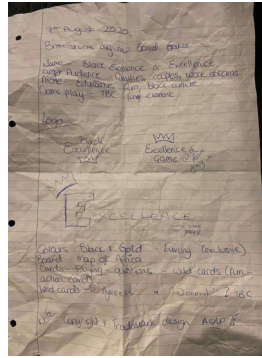 7th August 2020
Brainstorm day new Board Game
Name - Black Excellence or Excellence
Target Audience families, couples, work socials
Niche - Educate, fun, black culture
Game play - TBC fun element
Logo
Black
Excellence
Excellence
Game
EXCELLENCE
Colours - Black & Gold - luxury (exclusive)
Board - Map of Africa
Cards - Playing questions - wild cards (fun -
action card)
Wild cards - or ? TBC
Copyright / Trademark design ASAP